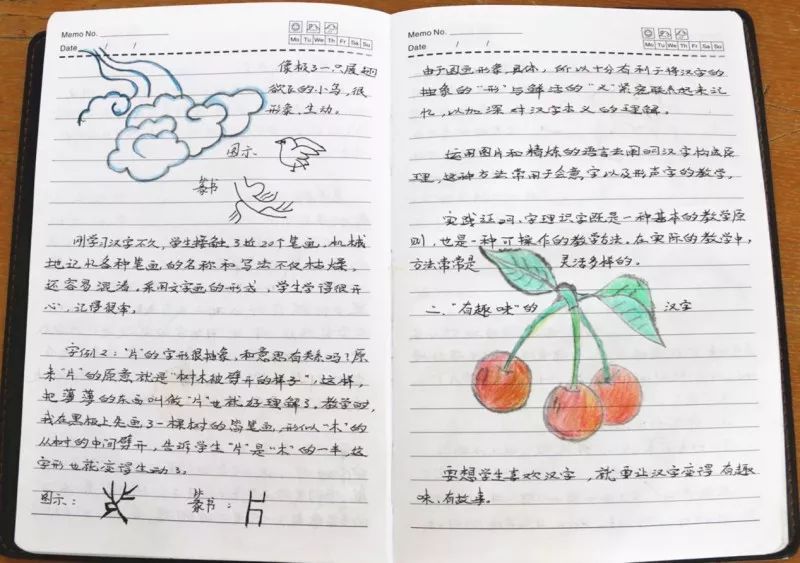 Memo No.
Date / /
Mo Tu We Th Fr Sa Su
像极了一只展翅
欲飞的小鸟,很
形象、生动。
图示:
篆书
刚学习汉字不久,学生接触了近20个笔画,机械
地记忆各种笔画的名称和写法不仅枯燥,
还容易混淆,采用文字画的形式,学生学得很开
心,记得很牢。
字例2:“片”的字形很抽象,和意思有关系吗?原
来“片”的原意就是“树木被劈开的样子”,这样,
把薄薄的东西叫做“片”也就好理解了。教学时,
我在黑板上先画了一棵树的简笔画,形似“木”的
从树的中间劈开,告诉学生“片”是“木”的一半,这
字形也就变得生动了。
图示:
篆书:
Memo No.
Date / /
Mo Tu We Th Fr Sa Su
由于图画形象、具体,所以十分有利于将汉字的
抽象的“形”与鲜活的“义”紧密联系起来记
忆,以加深对汉字字义的理解。
运用图片和精炼的语言去阐明汉字构成原
理,这种方法常用于会意字以及形声字的教学。
实践证明,字理识字既是一种基本的教学原
则,也是一种可操作的教学方法。在实际的教学中,
方法常常是 灵活多样的。
二、“有趣味”的 汉字
要想学生喜欢汉字,就要让汉字变得有趣
味、有故事。